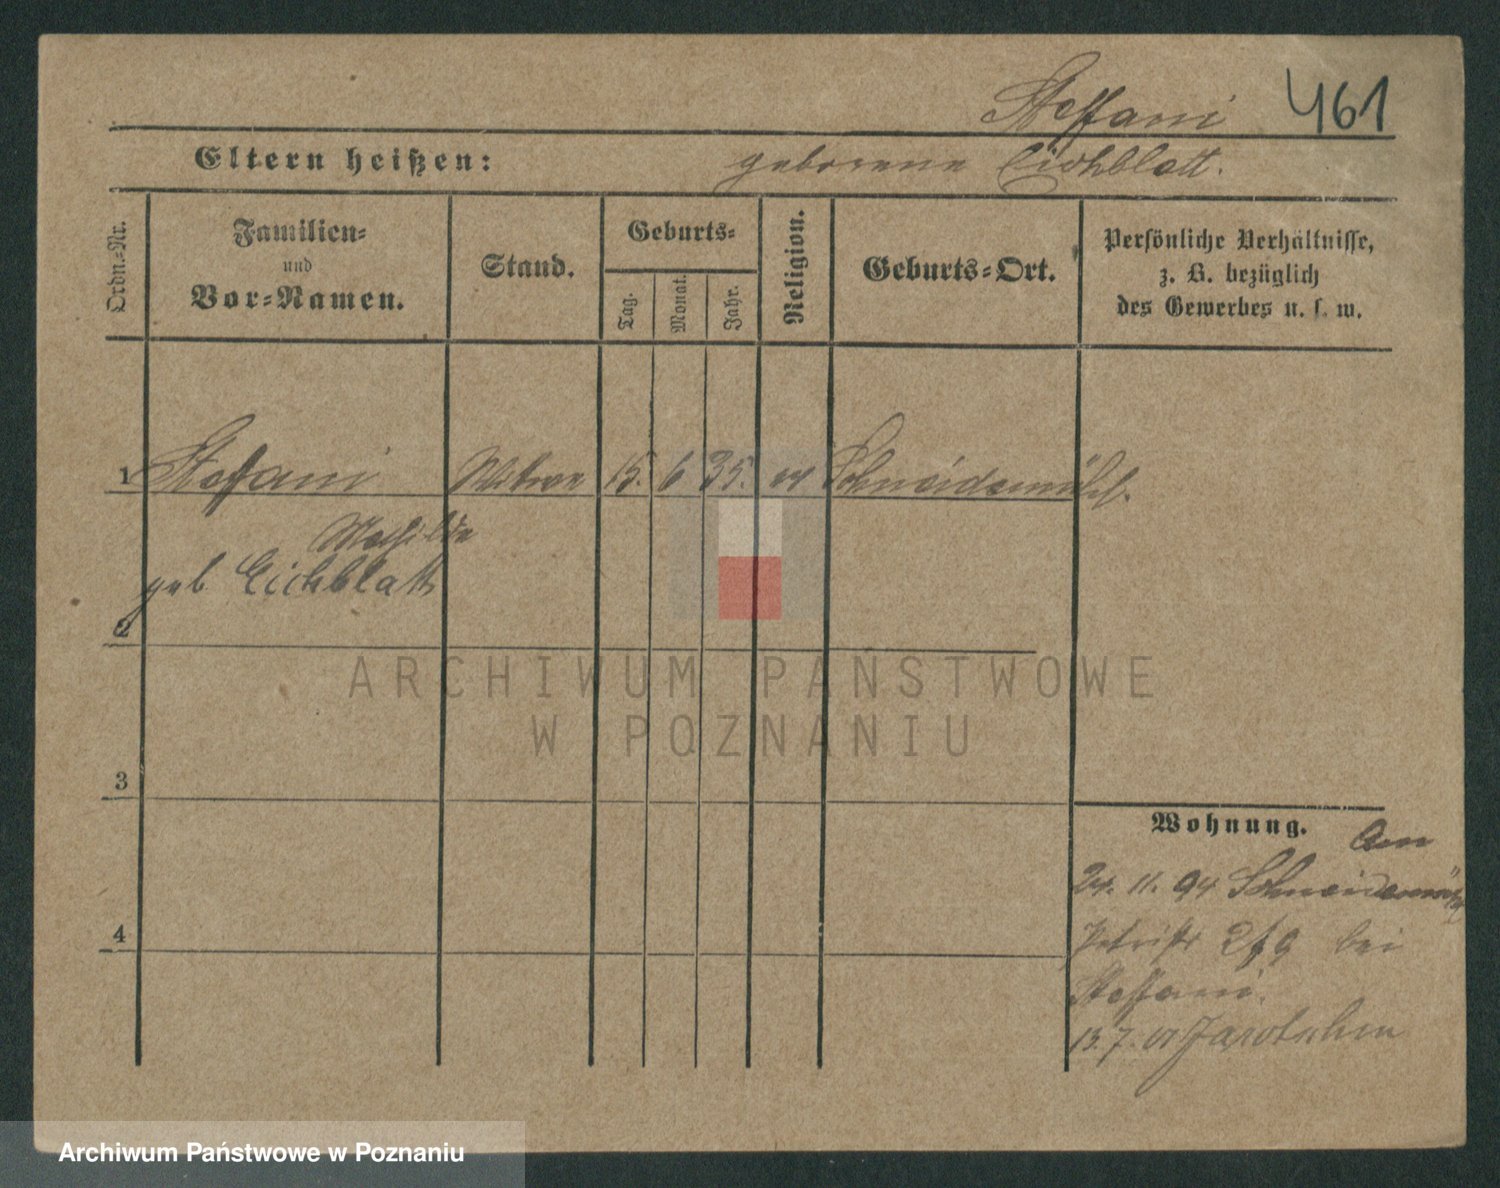 Steffani 461
Eltern heißen: geborene Eichblatt.
Ordn.-Nr.
Familien-
und
Vor-Namen.
Stand.
Geburts-
Tag.
Monat.
Jahr.
Religion.
Geburts-Ort.
Persönliche Verhältnisse,
z. B. bezüglich
des Gewerbes u. s. w.
1 Steffani Witwe 15. 6 35. ev Schneidemühl.
Mathilde
geb. Eichblatt
2
3
4
Wohnung. Am
24. 11. 94 Schneidemühl
bei
Steffani.
13. 7. 01 Jarotschin
ARCHIWUM PAŃSTWOWE
W POZNANIU
Archiwum Państwowe w Poznaniu